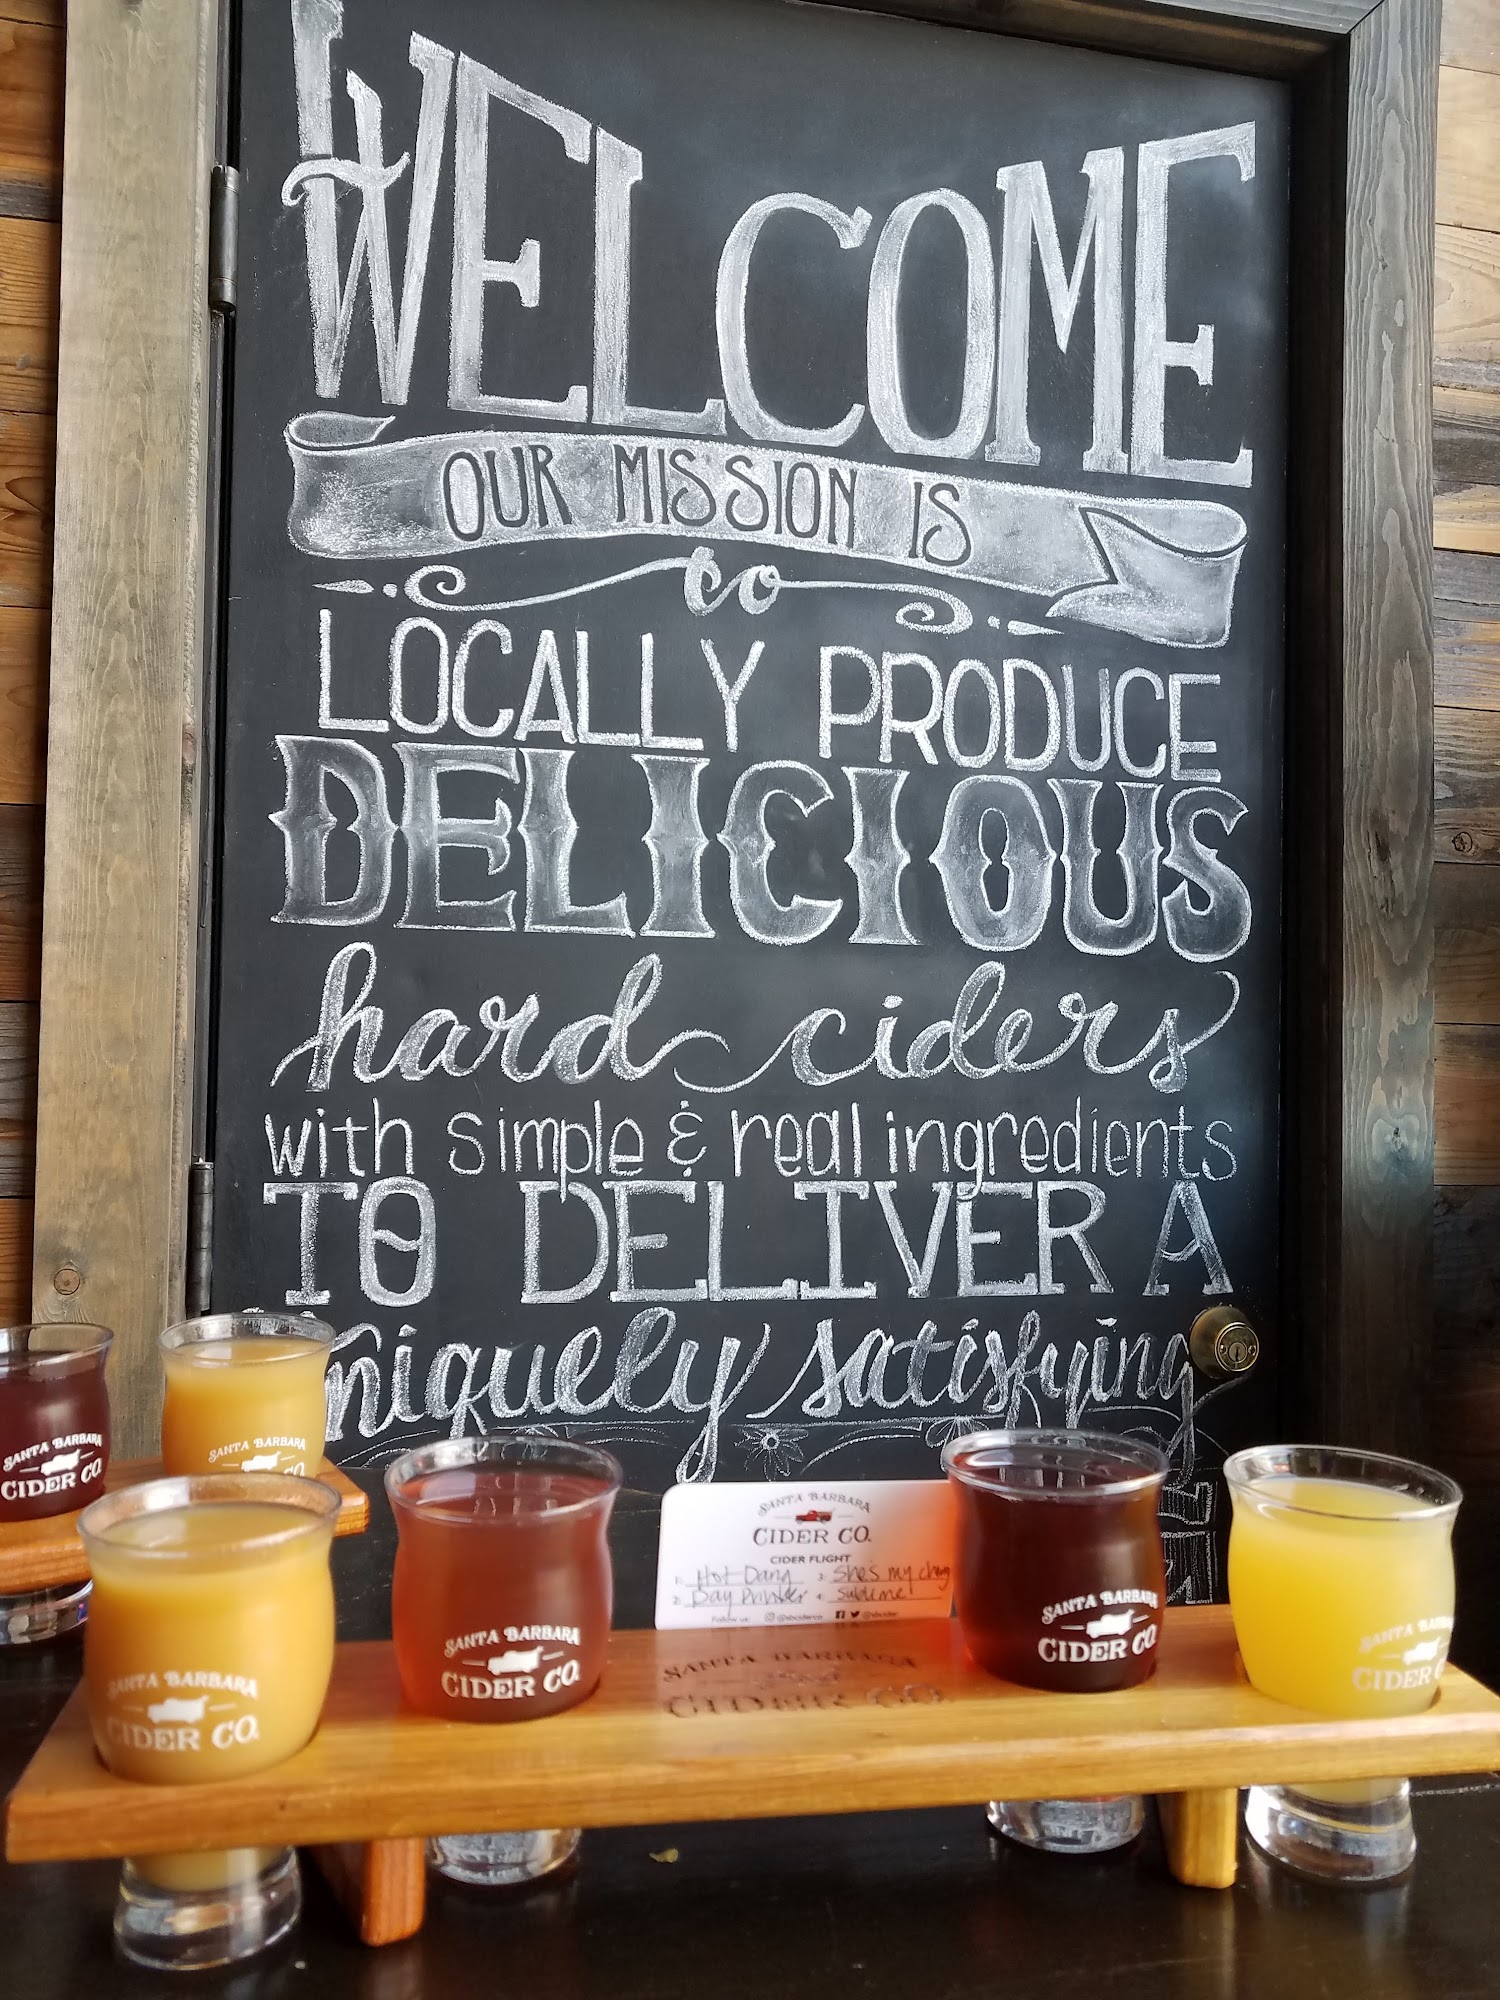 WELCOME
OUR MISSION IS
to
LOCALLY PRODUCE
DELICIOUS
hard ciders
with simple & real ingredients
TO DELIVER A
uniquely satisfying
SANTA BARBARA
CIDER CO.
SANTA BARBARA
SANTA BARBARA
CIDER CO.
CIDER FLIGHT
1. Hot Dang 3. She's my cherry
2. Day Drinker 4. Sublime
Follow us: @sbciderco @sbcider
SANTA BARBARA
CIDER CO.
SANTA BARBARA
CIDER CO.
SANTA BARBARA
CIDER CO.
SANTA BARBARA
CIDER CO.
SANTA BARBARA
CIDER CO.